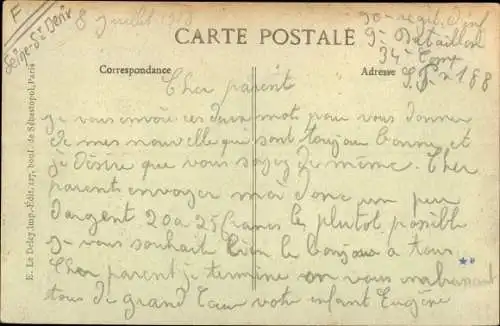 F
Seine-St Denis
8 juillet 1918
90 regit d'inf
9e Bataillon
34 Comp
S.P. n 188
CARTE POSTALE
Correspondance
Adresse
E. Le Deley, Imp.-Édit., 127, boul. de Sébastopol, Paris
Cher parent
je vous envoie ces deux mots pour vous donner
de mes nouvelle qui sont toujour bonne et
je désire que vous soyez de même. Cher
parent envoyer moi donc un peu
d'argent 20 a 25 francs le plutot possible
je vous souhait bien le bonjour a tous
Cher parent je termine en vous embrassant
tous de grand Cœur votre enfant Eugène